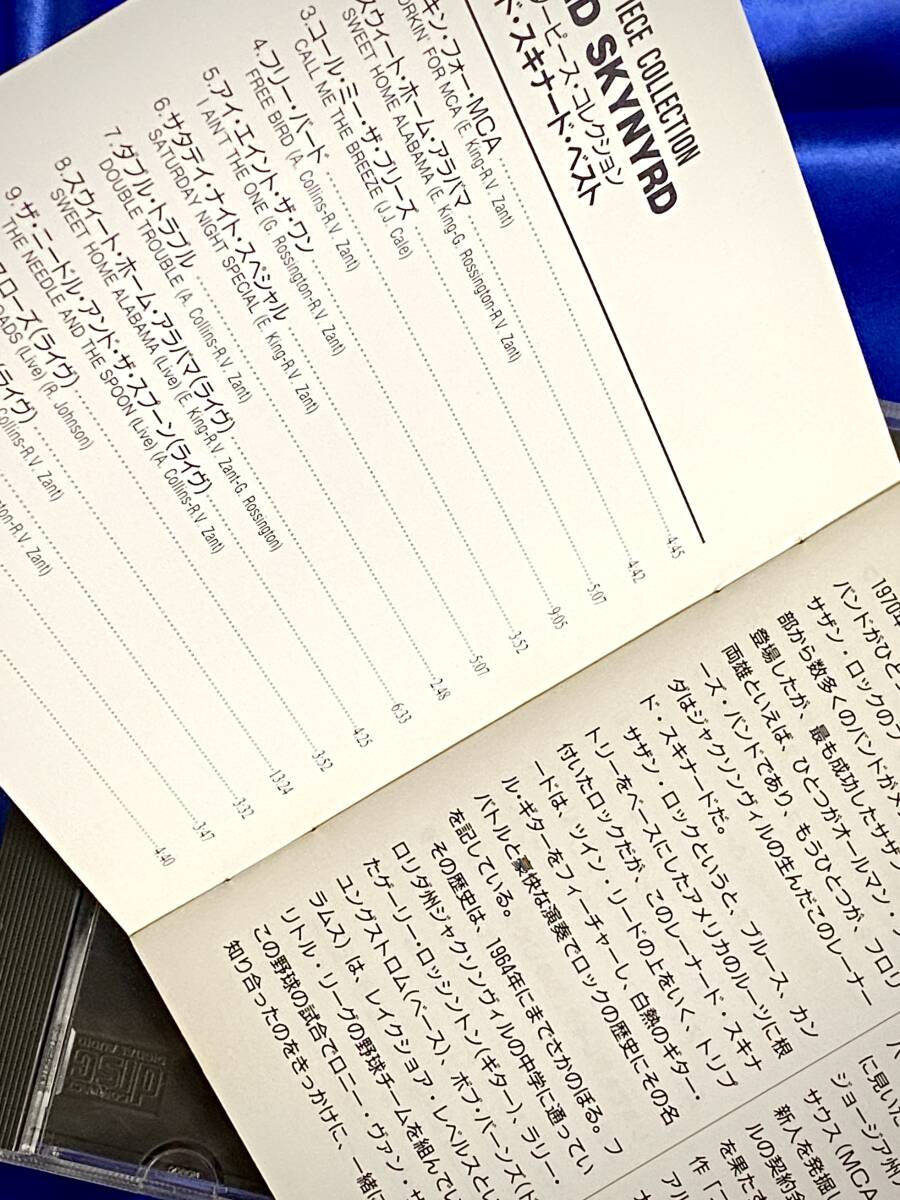 IECE COLLECTION
D SKYNYRD
ターピース・コレクション
ド・スキナード・ベスト
キン・フォー・MCA 4:45
ORKIN' FOR MCA (E. King-R.V. Zant)
スウィート・ホーム・アラバマ 4:42
SWEET HOME ALABAMA (E. King-G. Rossington-R.V. Zant)
3. コール・ミー・ザ・ブリーズ 5:07
CALL ME THE BREEZE (J.J. Cale)
4. フリー・バード 9:05
FREE BIRD (A. Collins-R.V. Zant)
5. アイ・エイント・ザ・ワン 3:52
I AIN'T THE ONE (G. Rossington-R.V. Zant)
6. サタデイ・ナイト・スペシャル 5:07
SATURDAY NIGHT SPECIAL (E. King-R.V. Zant)
7. ダブル・トラブル 2:48
DOUBLE TROUBLE (A. Collins-R.V. Zant)
8. スウィート・ホーム・アラバマ(ライヴ) 6:33
SWEET HOME ALABAMA (Live) (E. King-R.V. Zant-G. Rossington)
9. ザ・ニードル・アンド・ザ・スプーン(ライヴ) 4:25
THE NEEDLE AND THE SPOON (Live) (A. Collins-R.V. Zant)
スローズ(ライヴ) 3:52
OADS (Live) (R. Johnson)
(ライヴ) 13:24
Collins-R.V. Zant)
3:32
ton-R.V. Zant)
3:47
4:40
1970年
バンドがひと
サザン・ロックのブ
部から数多くのバンドがメ
登場したが、最も成功したサザン・
両雄といえば、ひとつがオールマン・ブ
ーズ・バンドであり、もうひとつが、フロリ
ダはジャクソンヴィルの生んだこのレーナー
ド・スキナードだ。
サザン・ロックというと、ブルース、カン
トリーをベースにしたアメリカのルーツに根
付いたロックだが、このレーナード・スキナ
ードは、ツイン・リードの上をいく、トリプ
ル・ギターをフィーチャーし、白熱のギター・
バトルと豪快な演奏でロックの歴史にその名
を記している。
その歴史は、1964年にまでさかのぼる。フ
ロリダ州ジャクソンヴィルの中学に通ってい
たゲーリー・ロッシントン(ギター)、ラリー・
ユングストロム(ベース)、ボブ・バーンズ(ド
ラムス)は、レイクショア・レベルスとい
リトル・リーグの野球チームを組んでい
この野球の試合でロニー・ヴァン・ザ
知り合ったのをきっかけに、一緒に
に見いた
ジョージア州
サウス(MCA
新人を発掘
ルの契約
を果たす
作「
アル
COMPACT
disc
DIGITAL AUDIO